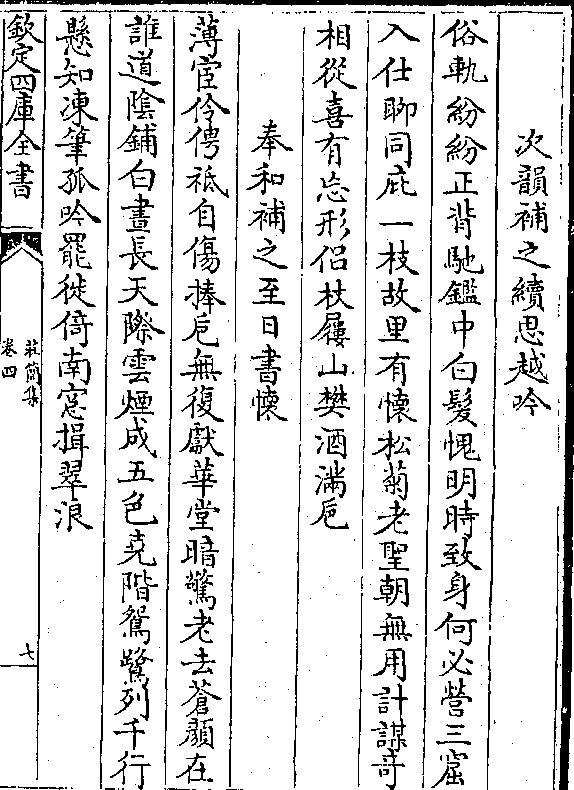 次韻補之續思越吟
俗軌紛紛正背馳鑑中白髮愧明時致身何必營三窟
入仕聊同庇一枝故里有懷松菊老聖朝無用計謀竒
相從喜有忘形侣杖屨山樊酒滿巵
奉和補之至日書懷
薄宦伶俜祗自傷捧巵無復獻華堂暗驚老去蒼顔在
誰道陰鋪白晝長天際雲煙成五色堯階鴛鷺列千行
懸知凍筆孤吟罷徙倚南窓揖翠浪
欽定四庫全書
莊簡集
卷四
七